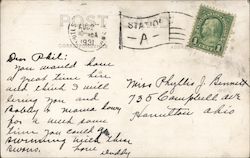 POST
AUG 2
1931
STATION
A
Dear Phil:
You would have
a great time here
and think I will
bring you and
Bobby & Mama down
for a week some
time you could go
swimming with them
Love Daddy
Miss Phyllis J. Bennett
735 Campbell ave
Hamilton Ohio